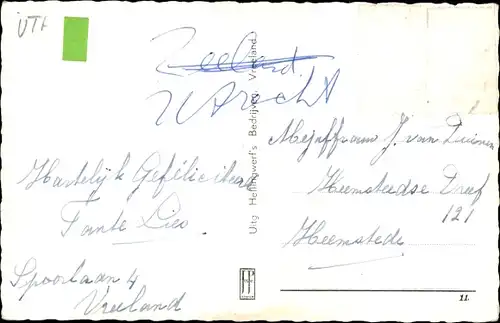 UTR
Zeeland.
Utrecht
Hartelijk Gefeliciteerd
Tante Lies
Spoorlaan 4
Vreeland
Uitg. Hellingwerf's Bedrijven, Vreeland.
Mejuffrouw J. van Duinen
Heemsteedse Dreef
121
Heemstede
11.